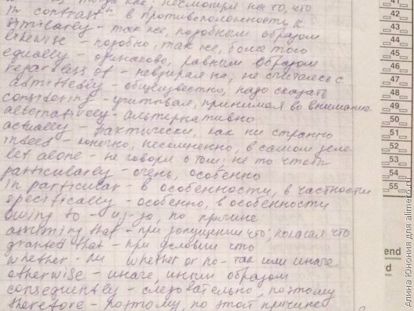 несмотря на то, что
in contrast - в противоположность к
similarly - так же, подобным образом
likewise - подобно, так же, более того
equally - одинаково, равным образом
regardless of - невзирая на, не считаясь с
admittedly - общеизвестно, надо сказать
considering - учитывая, принимая во внимание
alternatively - альтернативно
actually - фактически, как ни странно
indeed - конечно, несомненно, в самом деле
let alone - не говоря о том, не то чтоб
particularly - очень, особенно
in particular - в особенности, в частности
specifically - особенно, в особенности
owing to - из-за, по причине
assuming that - при допущении что, полагая что
granted that - при условии что
whether - ли whether or no - так или иначе
otherwise - иначе, иным образом
consequently - следовательно, поэтому
therefore - поэтому, по этой причине
41
42
43
44
45
46
47
48
49
50
51
52
53
54
55
end
d
Алина Юнония для alimero.ru